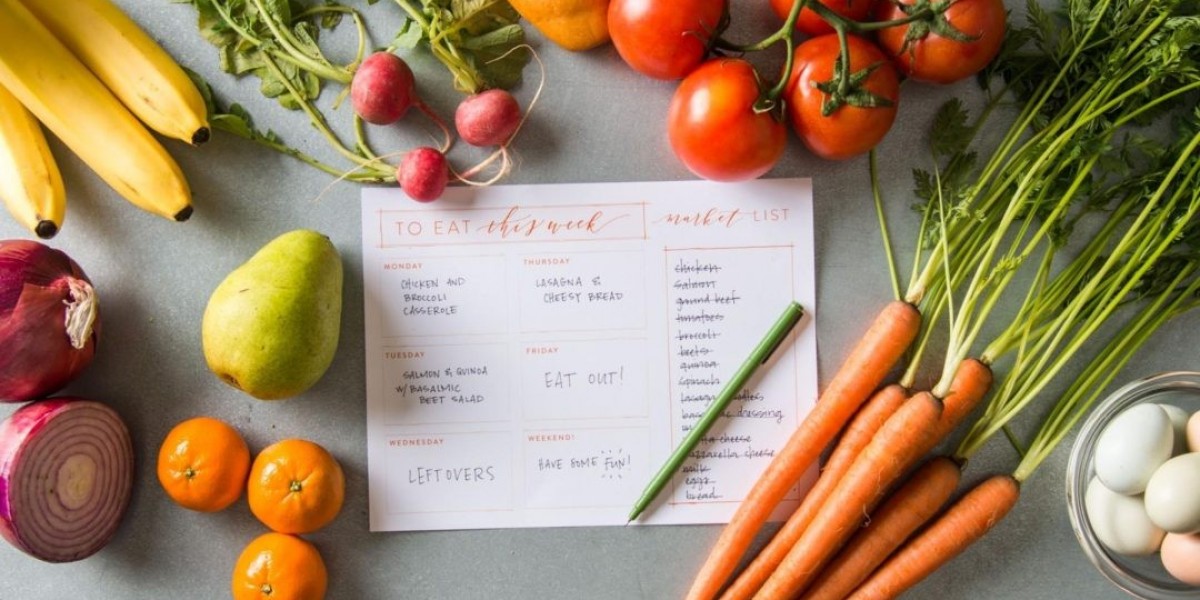 TO EAT this week
MONDAY
CHICKEN AND
BROCCOLI
CASSEROLE
TUESDAY
SALMON & QUINOA
W/ BASALMIC
BEET SALAD
WEDNESDAY
LEFTOVERS
THURSDAY
LASAGNA &
CHEESY BREAD
FRIDAY
EAT OUT!
WEEKEND!
HAVE SOME FUN!
market LIST
chicken
salmon
ground beef
tomatoes
broccoli
beets
quinoa
spinach
dressing
cheese
cheese
milk
eggs
bread